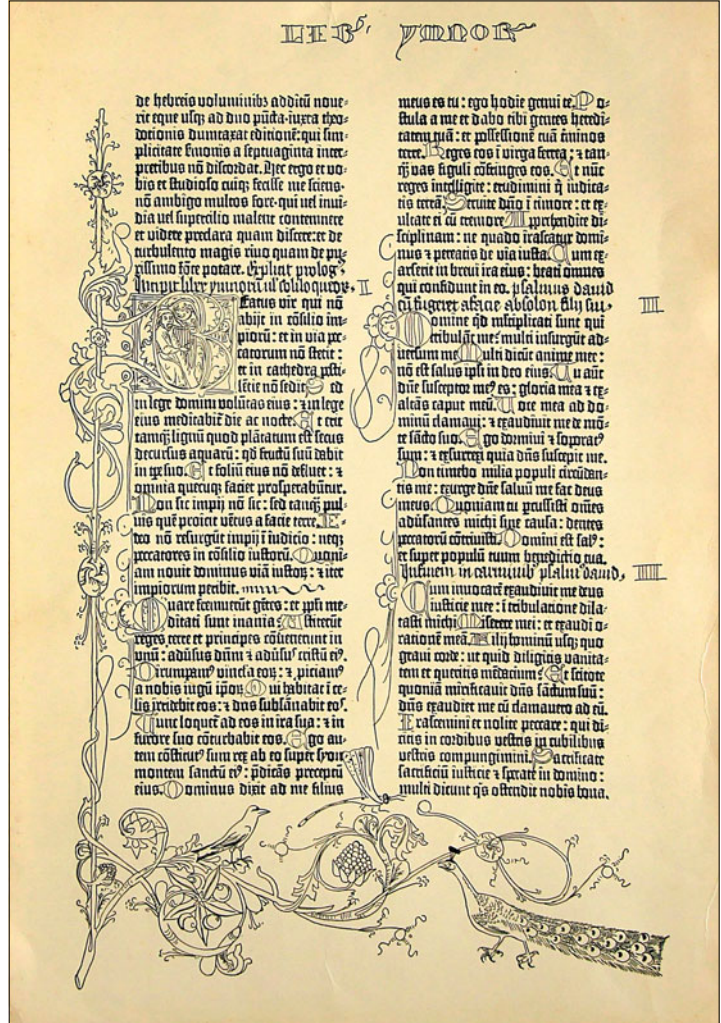 LIB' YMNOR
de hebreis voluminibꝫ additū nove-
rit eque usqꝫ ad duo pūcta·iuxta theo-
dotionis dumtaxat editionē: qui sim-
plicitate sermonis a septuaginta inter-
pretibus nō discordat. Hec ergo et vo-
bis et studioso cuiqꝫ fecisse me sciens·
nō ambigo multos fore·qui vel invi-
dia vel supercilio malent contemnere
et videre preclara quam discere: et de
turbulento magis rivo quam de pu-
rissimo fōte potare. Explicit prolog⁹
Incipit liber ymnorū vl' soliloquiorꝝ. II
Beatus vir qui nō
abijt in cōsilio im-
piorū: et in via pec-
catorum nō stetit:
et in cathedra pesti-
lētie nō sedit, Sed
in lege domini volūtas eius: ⁊ in lege
eius meditabit die ac nocte. Et erit
tamqꝫ lignū quod plātatum est secus
decursus aquarū: qd fructū suū dabit
in tpe suo. Et foliū eius nō defluet: ⁊
omnia quecūqꝫ faciet prosperabūtur.
Non sic impij nō sic: sed tanqꝫ pul-
vis quē proicit vētus a facie terre. I-
deo non resurgūt impij ī iudicio: neqꝫ
peccatores in cōsilio iustorū. Quoni-
am novit dominus viā iustorꝝ: ⁊ iter
impiorum peribit.
Quare fremuerūt gētes: et ppli me-
ditati sunt inania: Astiterūt
reges terre et principes cōvenerunt in
unū: adūsus dūm ⁊ adūsus cristū ei⁹.
Dirumpam⁹ vincla eorꝝ: ⁊ piciam⁹
a nobis iugū ipoꝝ. Qui habitat ī ce-
lis irridebit eos: ⁊ dns subsānabit eo⁹.
Tunc loquet ad eos in ira sua: ⁊ in
furore suo cōturbabit eos. Ego au-
tem cōstitut⁹ sum rex ab eo super syon
montem sanctū ei⁹: p̄dicās preceptū
eius. Dominus dixit ad me filius
meus es tu: ego hodie genui te. Po-
stula a me et dabo tibi gentes heredi-
tatem tuā: et possessionē tuā tīminos
terre. Reges eos ī virga ferrea: ⁊ tan-
qꝫ vas figuli cōfringes eos. Et nūc
reges intelligite: erudimini q̄ iudica-
tis terrā. Servite dn̄o ī timore: et ex-
ultate ei cū tremore. Apprehendite di-
sciplinam: ne quādo irascatur domi-
nus ⁊ pereatis de via iusta. Cum ex-
arserit in brevi ira eius: beati omnes
qui confidunt in eo. psalmus david
cū fugeret a facie absolon filij sui. III
Domine qd multiplicati sunt qui
tribulāt me: multi insurgūt ad-
versum me Multi dicūt anime mee:
nō est salus ipsi in deo eius. Tu aūt
dn̄e susceptor me⁹ es: gloria mea ⁊ ex-
altās caput meū. Voce mea ad do-
minū clamavi: ⁊ exaudivit me de mō-
te sācto suo. Ego dormivi ⁊ soporat⁹
sum: ⁊ exsurrexi quia dn̄s suscepit me.
Non timebo milia populi circūdan-
tis me: exurge dn̄e salvū me fac deus
meus. Quoniam tu percussisti om̄es
adūsantes michi sine causa: dentes
peccatorū cōtrivisti. Domini est sal⁹:
et super populū tuum benedictio tua.
In finem in carminib⁹ psalm⁹ david, IIII
Cum invocarē exaudivit me deus
iusticie mee: ī tribulatione dila-
tasti michi Miserere mei: et exaudi o-
rationē meā. Filij hominū usqꝫ quo
gravi corde: ut quid diligitis vanita-
tem et queritis mēdacium? Et scitote
quoniā mirificavit dn̄s sāctum suū:
dn̄s exaudiet me cū clamavero ad eū.
Irascemini et nolite peccare: qui di-
citis in cordibus vestris in cubilibus
vestris compungimini. Sacrificate
sacrificiū iusticie ⁊ sperate in domino:
multi dicunt q̄s ostendit nobis bona.